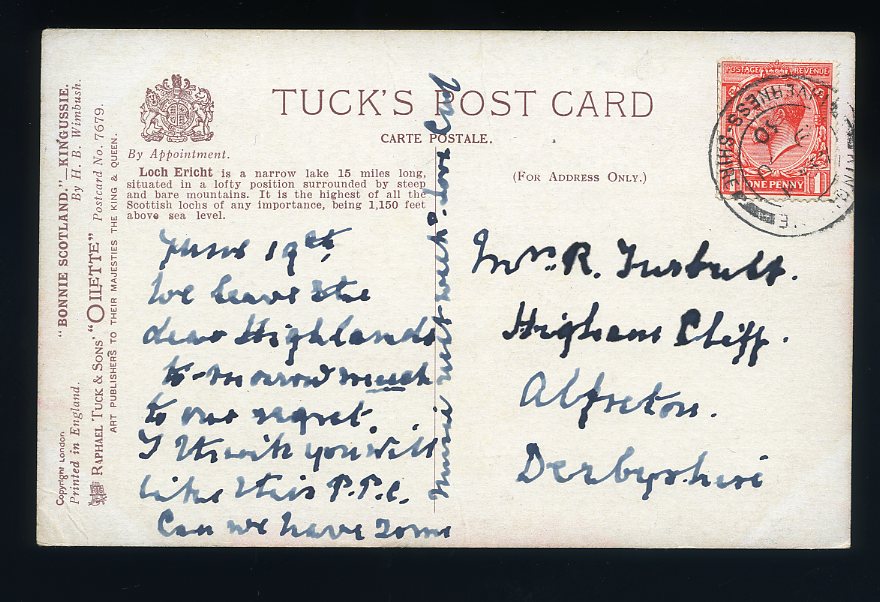 TUCK'S POST CARD
CARTE POSTALE.
By Appointment.
(FOR ADDRESS ONLY.)
Loch Ericht is a narrow lake 15 miles long,
situated in a lofty position surrounded by steep
and bare mountains. It is the highest of all the
Scottish lochs of any importance, being 1,150 feet
above sea level.
"BONNIE SCOTLAND."—KINGUSSIE.
By H. B. Wimbush.
RAPHAEL TUCK & SONS' "OILETTE" Postcard No. 7679.
ART PUBLISHERS TO THEIR MAJESTIES THE KING & QUEEN.
Copyright London
Printed in England.
POSTAGE REVENUE
ONE PENNY 1
INVERNESS SHIRE
June 19th
We leave the
dear Highlands
to-morrow much
to our regret.
I think you will
like this P.P.C.
Can we have some
music next week? Love
Mrs. R. Turbutt.
Higham Cliff.
Alfreton.
Derbyshire